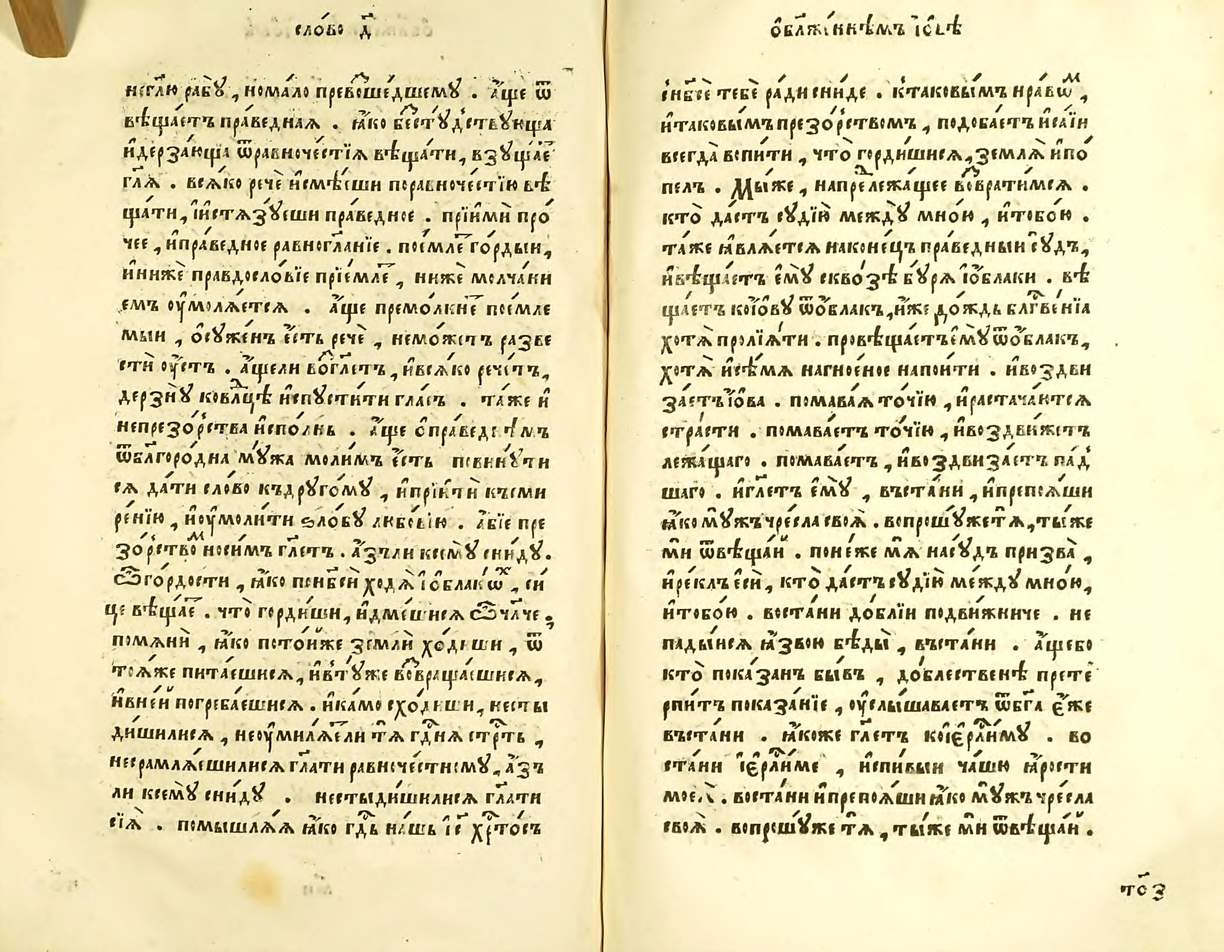 сло́во д҃
неглю рабꙋ̀, нома́ло превоше́дшемꙋ . а҆́ще ѿ
вѣща́етъ пра́веднаѧ . ꙗ҆́ко бестꙋ́дствꙋюща
и҆дерза́юща ѿравноче́стїѧ вѣща́ти, взꙋща́е
гл҃ѧ . всѧ́ко речѐ и҆смѣ́еши поравноче́стїю вѣ
ща́ти, и҆истѧзꙋ́еши пра́ведное . прїимѝ про́
чее, и҆пра́ведное равногл҃анїе . пое́мле го́рдыи,
и҆нижѐ правдосло́вїе прїе́мле, нижѐ молча́ни
емъ оу҆молѧ́етсѧ . а҆́ще премо́лкне пое́мле
мыи, ѡ҆сꙋже́нъ є҆́сть речѐ, немо́жетъ разве
стѝ оу҆́стъ . а҆́щели во́гл҃етъ, и҆всѧ́ко рече́тъ,
дерзнꙋ̀ ковлцѣ и҆спꙋсти́ти гла́съ . та́же и҆
непрезо́рства и҆спо́лнь . а҆́ще ѡ҆праведе нїемъ
ѿбл҃горо́дна мꙋ́жа моли́мъ є҆́сть повинꙋ́ти
сѧ да́ти сло́во къдрꙋго́мꙋ, и҆прїитѝ късми
ре́нїю, и҆оу҆моли́ти ѕло́бꙋ любо́вїю . а҆́бїе пре
зо́рствомъ носи́мъ гл҃етъ . а҆́зъли ксемꙋ̀ сни́дꙋ.
Ѽго́рдости, ꙗ҆́ко понб҃сѝ ходѧ̀ і҆о́блакѡ́х, си́
це вѣща́е . что̀ горди́ши, и҆дме́шисѧ ѽчл҃че,
помѧнѝ, ꙗ҆́ко пото́иже землѝ хо́диши, ѿ
тоѧ́же пита́ешисѧ, и҆втꙋ́же вовраща́ешисѧ,
и҆вне́й погреба́ешисѧ . и҆ка́мо схо́диши, несты
ди́шилисѧ, неоу҆милѧ́ели тѧ̀ гд҃нѧ стр҃ть,
несрамлѧ́ешилисѧ гл҃ати равноче́стномꙋ, а҆́зъ
ли ксемꙋ̀ сни́дꙋ . нестыди́шилисѧ гл҃ати
сїѧ̀ . помышлѧ́ѧ ꙗ҆́ко гд҃ь на́шь і҆с҃ хр҃то́съ
ѡ҆бл҃же́ннѣмъ і҆ѡ҆́вѣ
снб҃сѐ тебѐ ра́ди сни́де . ктаковы́мъ нра́вѡм,
и҆таковы́мъ презо́рствомъ, подоба́етъ и҆са́їи
всегда̀ вопи́ти, что̀ горди́шисѧ, землѧ̀ и҆по́
пелъ . Мы́же, напрележа́щее вовра́тимсѧ .
кто̀ да́стъ сꙋдїю̀ междꙋ̀ мно́ю, и҆тобо́ю .
та́же ꙗ҆влѧ́етсѧ наконе́цъ пра́ведныи сꙋ́дъ,
и҆вѣща́етъ є҆мꙋ̀ сквозѣ̀ бꙋ́рѧ і҆о́блаки . вѣ
ща́етъ кої҆о́вꙋ ѿо́блакъ, и҆́же до́ждь бл҃гве́нїа
хотѧ̀ пролїѧ́ти . провѣща́етъ є҆мꙋ̀ ѿо́блакъ,
хотѧ̀ и҆сѣ́мѧ нагно́еное напои́ти . и҆воздви
за́етъ і҆́ова . помава́ѧ то́чїю, и҆растача́ютсѧ
стра́сти . помава́етъ то́чїю, и҆воздви́жетъ
лежа́щаго . помава́етъ, и҆воздвиза́етъ па́д
шаго . и҆гл҃етъ є҆мꙋ̀, въста́ни, и҆препоѧ́ши
ꙗ҆́ко мꙋ́жъ чре́сла своѧ̀ . вопрошꙋ́же тѧ̀, ты́же
мѝ ѿвѣща́й . поне́же мѧ̀ насꙋ́дъ призва̀,
и҆ре́клъ є҆сѝ, кто̀ да́стъ сꙋдїю̀ междꙋ̀ мно́ю,
и҆тобо́ю . воста́ни до́блїи подви́жниче . не
па́дыисѧ ꙗ҆́звою бѣды̀, въста́ни . а҆́щебо
кто̀ пока́занъ бы́въ, до́блественѣ прете́
рпитъ показа́нїе, оу҆слышава́етъ ѿбг҃а є҆́же
въста́ни . ꙗ҆́коже гл҃етъ коі҆ер҃ли́мꙋ . во
ста́ни і҆ер҃ли́ме, и҆спи́выи ча́шю ꙗ҆́рости
моеѧ̀ . воста́ни и҆препоѧ́ши ꙗ҆́ко мꙋ́жъ чре́сла
своѧ̀ . вопрошꙋ́же тѧ̀, ты́же мѝ ѿвѣща́й .
то҃з